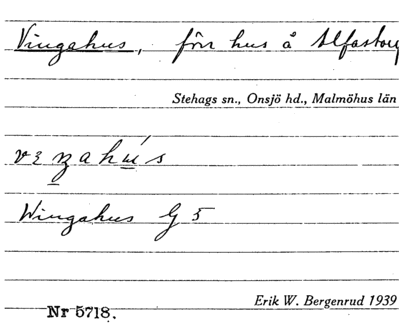 Vingahus, förr hus å Alfastorp
Stehags sn., Onsjö hd., Malmöhus län
vɛŋahús
Wingahus G 5
Erik W. Bergenrud 1939
Nr 5718.